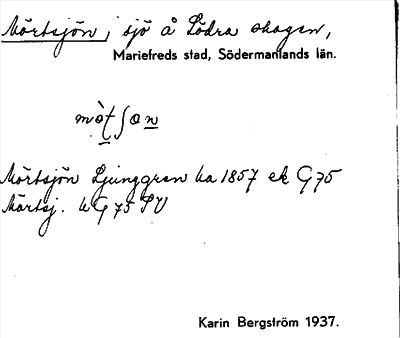 Mörtsjön, sjö å Södra skogen,
Mariefreds stad, Södermanlands län.
mö̀tʃon
Mörtsjön Ljunggren ka 1857 ek G 75
Mörtsj. kG 75 SV
Karin Bergström 1937.